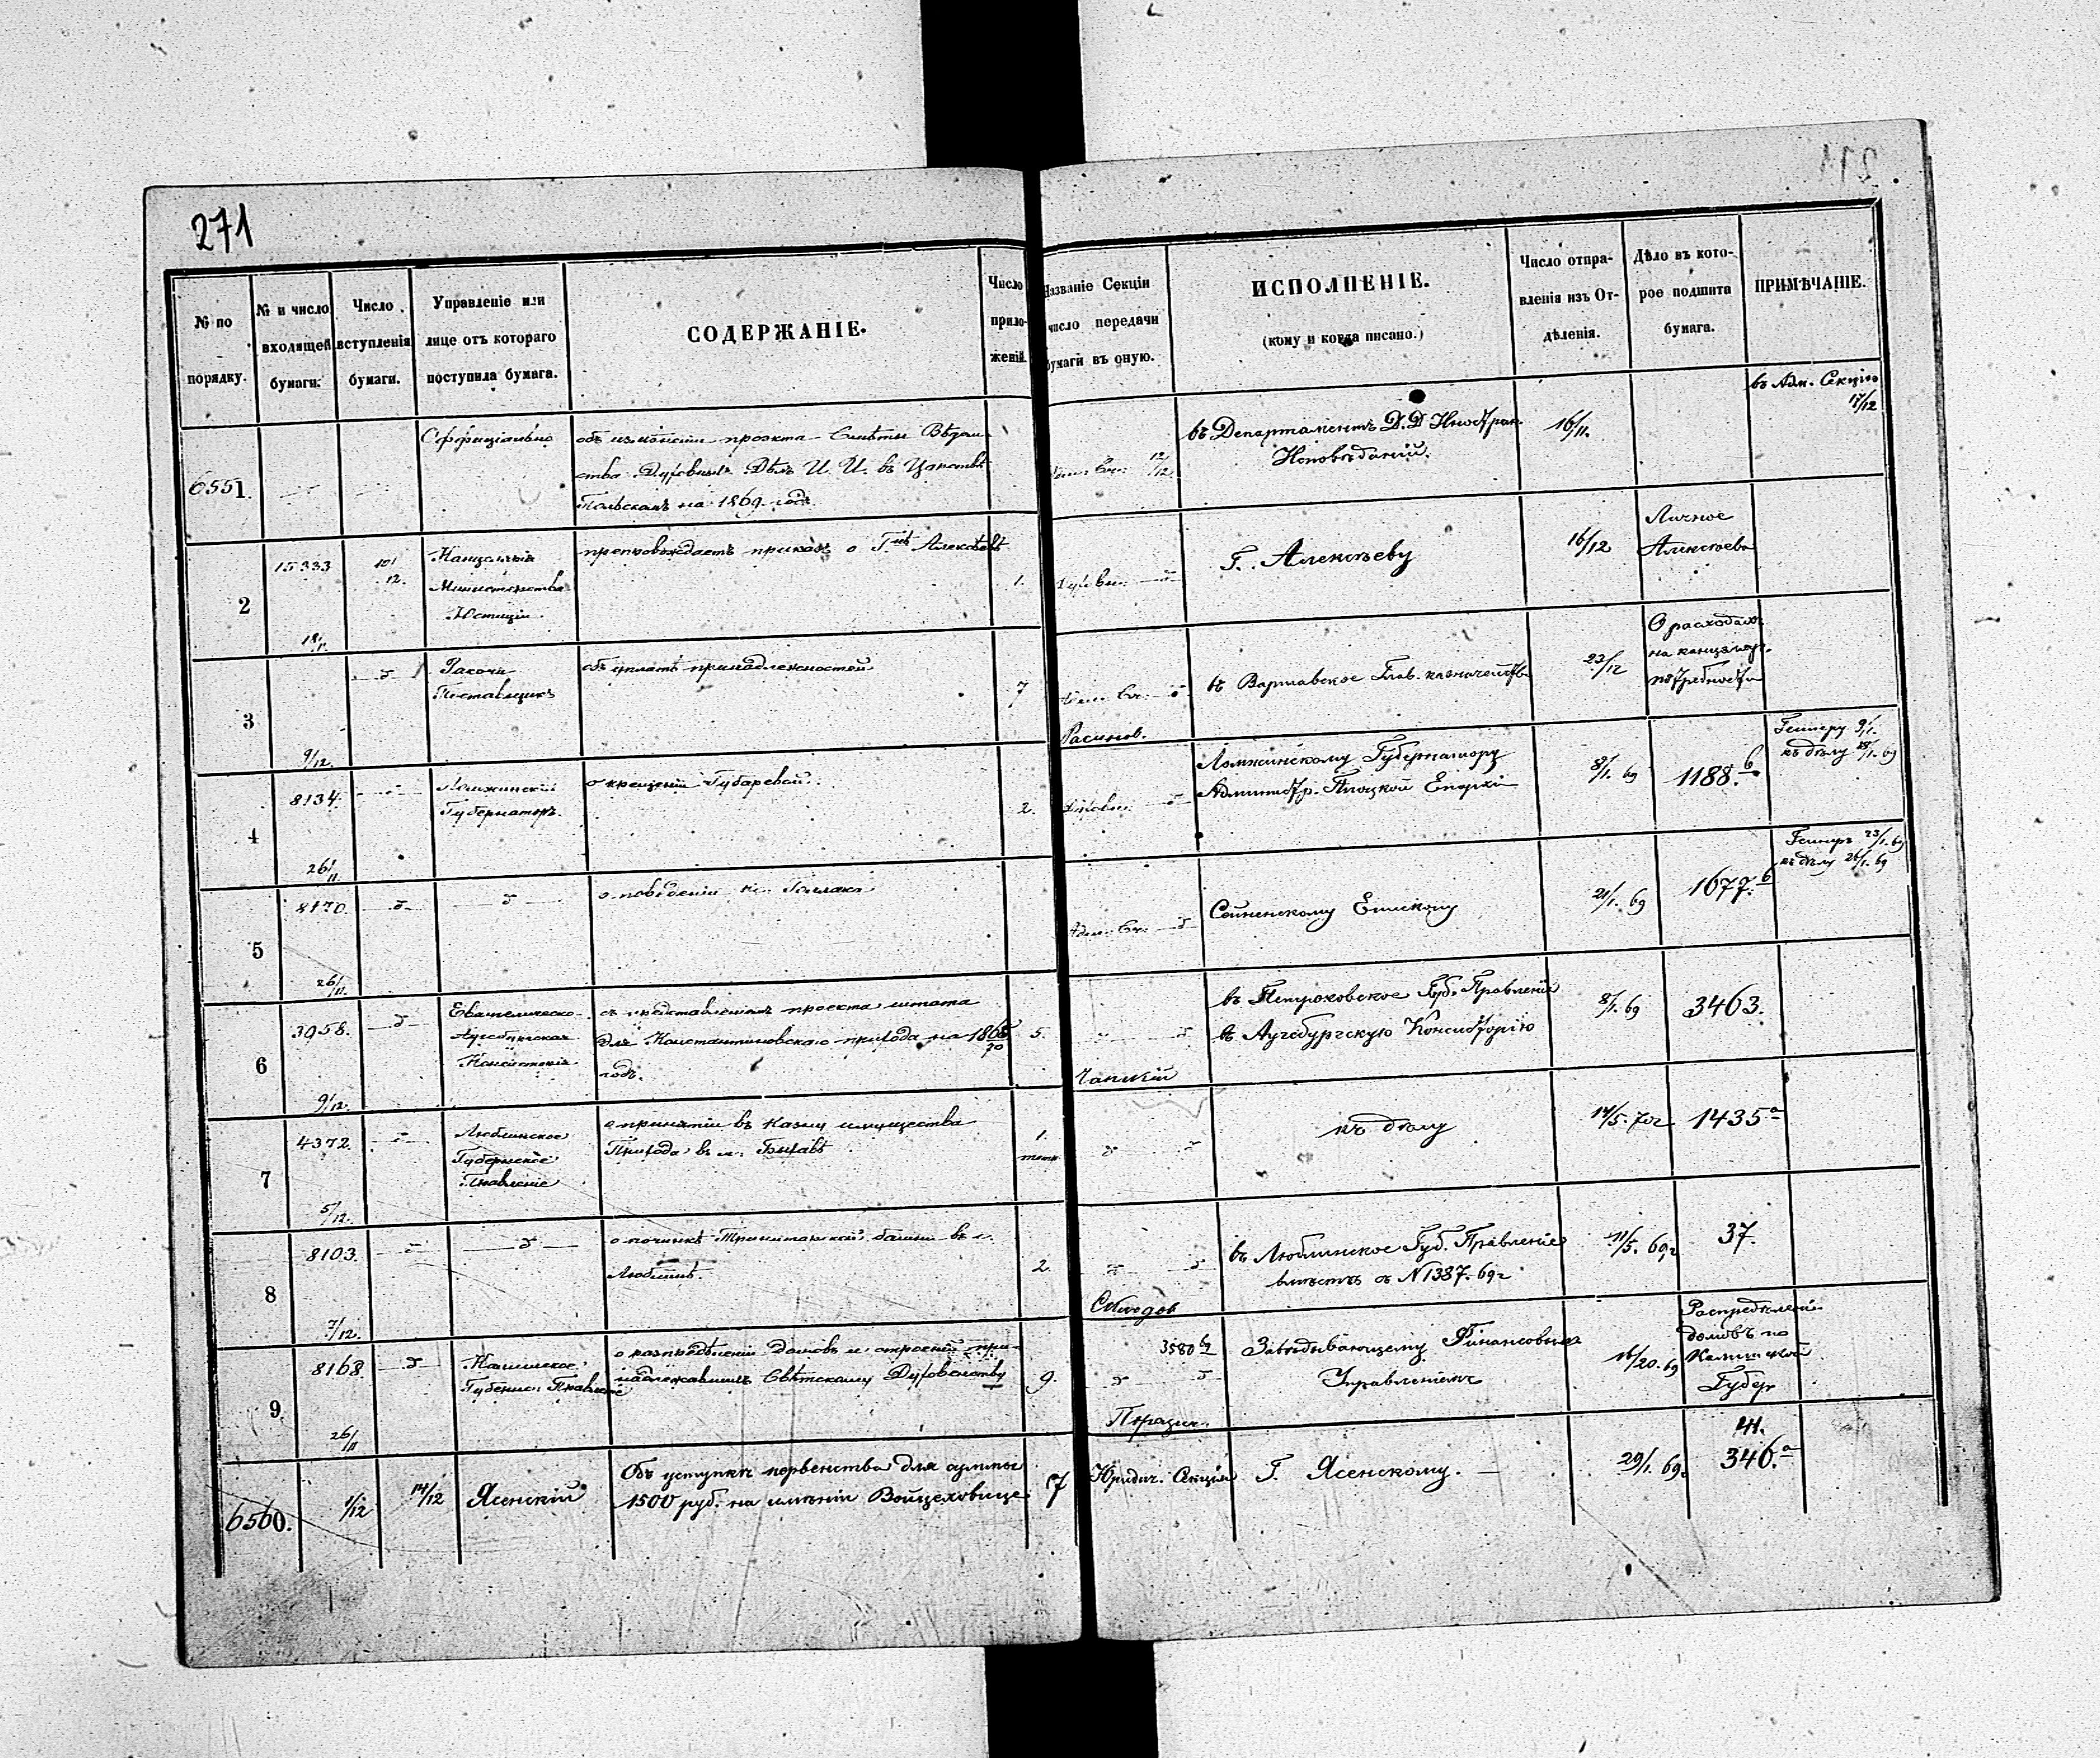 271
№ по порядку.
№ и число входящей бумаги.
Число вступленія бумаги.
Управленіе или лице отъ котораго поступила бумага.
СОДЕРЖАНІЕ.
Число приложеній.
Названіе Секціи число передачи бумаги въ оную.
ИСПОЛНЕНІЕ.
(кому и когда писано.)
Число отправленія изъ Отдѣленія.
Дѣло въ которое подшита бумага.
ПРИМѢЧАНІЕ.
6551.
объ измѣненіи проэкта Смѣты Вѣдом-
ства Духовныхъ Дѣлъ И. И. въ Царствѣ
Польскомъ на 1869 годъ
12/12
въ Департаментъ Д.Д Иностран.
Исповѣданій.
16/11.
въ Адм. Секцію
17/12
2
15333
10/12.
Канцелярія
Министерства
Юстиціи
препровождаетъ приказъ о Г-нѣ Алексѣевѣ
1.
Г. Алексѣеву
16/12
Личное
Алексѣева
3
9/12.
Поставщикъ
объ уплатѣ принадлежностей
7
въ Варшавское Глав. казначейство
23/12
О расходахъ
на канцеляр.
потребности
4
8134.
26/11
Ломжинскій
Губернаторъ.
о крещеніи Губаревой.
2.
Ломжинскому Губернатору
Администр. Плоцкой Епархіи
8/1. 69
1188.б
къ дѣлу
5
8170.
26/11.
о поведеніи
Сейненскому Епископу
21/1. 69
1677.б
къ дѣлу 26/1. 69
6
3958.
9/12.
Евангелическо-
Аугсбургская
Консисторія
съ представленіемъ проекта штата
для Константиновскаго прихода на 18
годъ.
5.
въ Петроковское Губ. Правленіе
въ Аугсбургскую Консисторію
8/1. 69
3463.
7
4372.
5/12.
Люблинское
Губернское
Правленіе
о принятіи въ казну имущества
Прихода въ м. Быхавѣ
1.
къ дѣлу
14/5. 70г
1435а
8
8103.
7/12.
о починкѣ Тринитарской башни въ г.
Люблинѣ.
2.
въ Люблинское Губ. Правленіе
вмѣстѣ съ N 1387. 69г
11/5. 69г
37.
9
8168.
26/11
Калишское
Губернск. Правленіе
о распредѣленіи домовъ и строеній при-
надлежавшихъ Свѣтскому Духовенству
9.
3580
Завѣдывающему Финансовымъ
Управленіемъ
Распредѣленіе
домовъ по
Калишской
Губер
6560.
1/12
14/12
Ясенскій
Объ уступкѣ первенства для суммы
1500 руб. на имѣніи Войцеховице
7
Юридич. Секція
Г. Ясенскому.
29/1. 69.
346.а